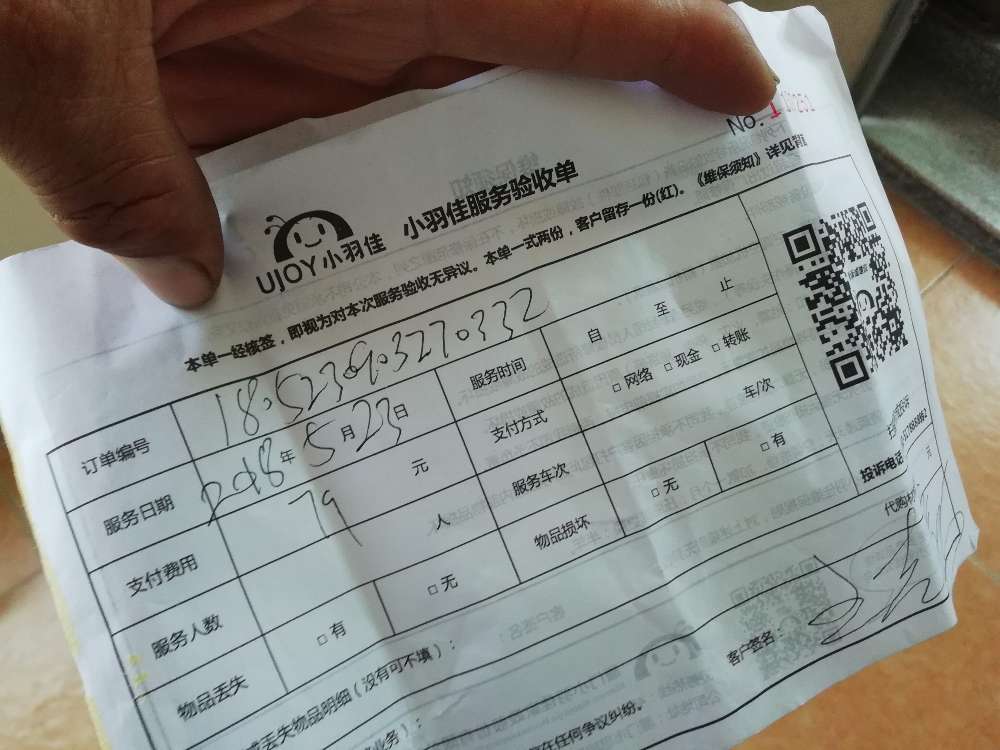 No. 1
UJOY小羽佳 小羽佳服务验收单
本单一经核签，即视为对本次服务验收无异议。本单一式两份，客户留存一份(红)。《维保须知》详见背
订单编号 1805230903270332 服务时间 自 至 止
服务日期 2018年5月23日 支付方式 □网络 □现金 □转账
支付费用 79 元 服务车次 车/次
服务人数 人 物品损坏 □无 □有
物品丢失 □有 □无
丢失物品明细（没有可不填）：
投诉电话
代购
元
业务）：
客户签名：
在任何争议纠纷。